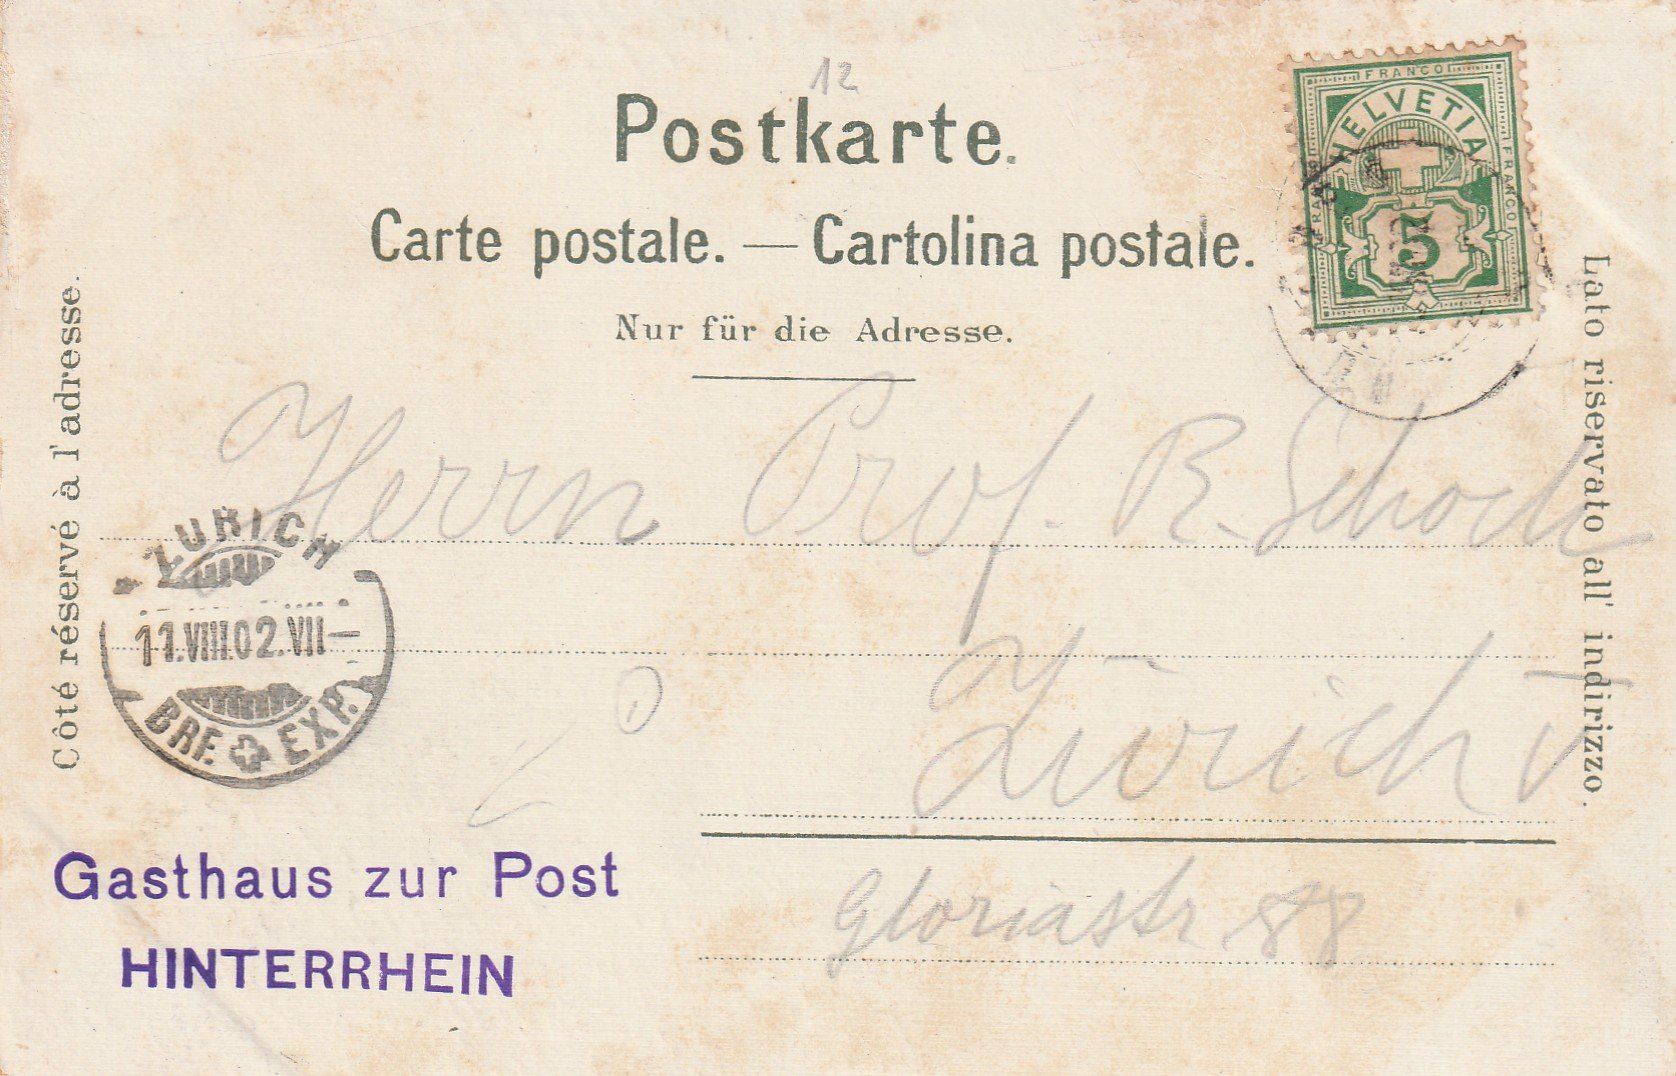 12
Postkarte.
Carte postale. — Cartolina postale.
Nur für die Adresse.
FRANCO
HELVETIA
FRANCO
FRANCO
5
Côté réservé à l'adresse.
Lato riservato all' indirizzo.
Herrn Prof. R. Schoch
Zürich V
Gloriastr 88
ZÜRICH
11.VIII.02.VII—
BRF. EXP.
Gasthaus zur Post
HINTERRHEIN